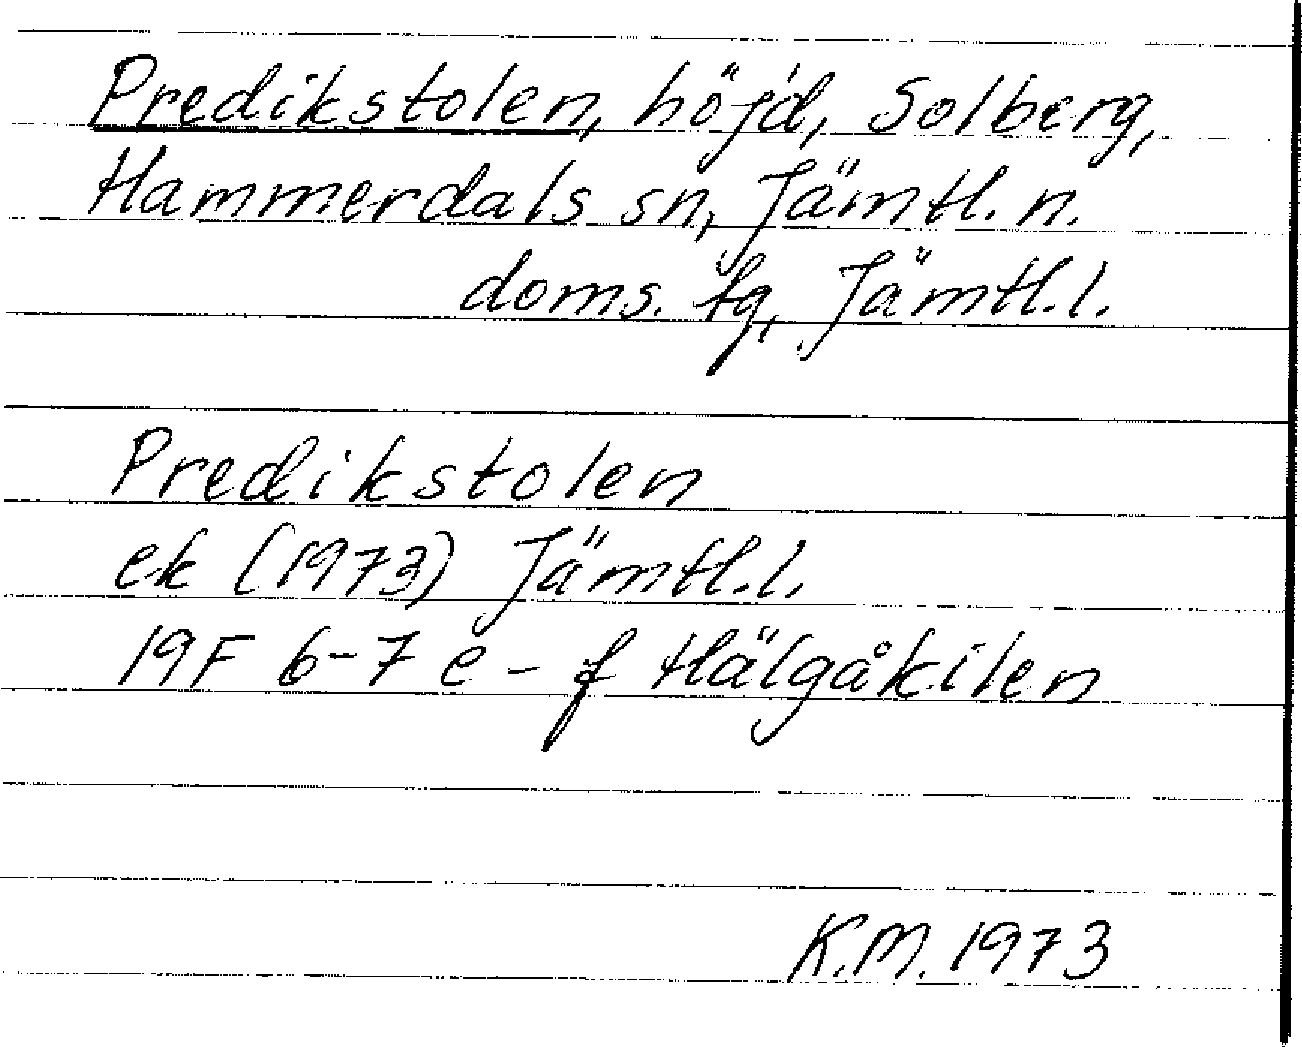 Predikstolen, höjd, Solberg,
Hammerdals sn, Jämtl. n.
doms. tg, Jämtl. l.
Predikstolen
ek (1973) Jämtl. l.
19F 6-7 e - f Hälgåkilen
K.M. 1973